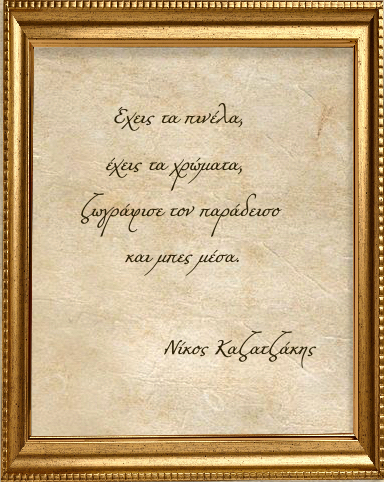 Έχεις τα πινέλα,
έχεις τα χρώματα,
ζωγράφισε τον παράδεισο
και μπες μέσα.
Νίκος Καζατζάκης